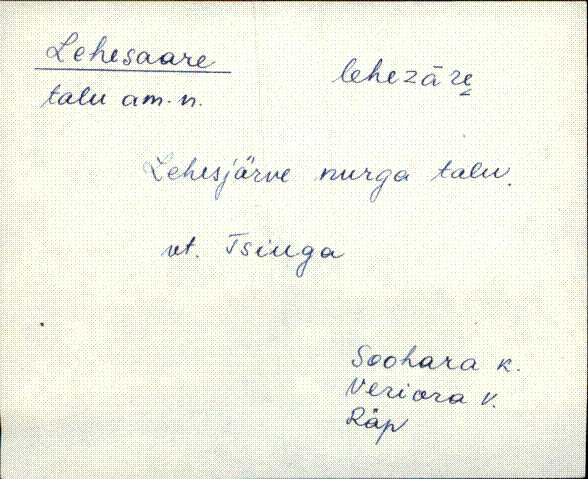 Lehesaare
lehezāre̬
talu am. n.
Lehesjärve nurga talu.
vt. Tsiuga
Soohara k.
Veriora v.
Räp